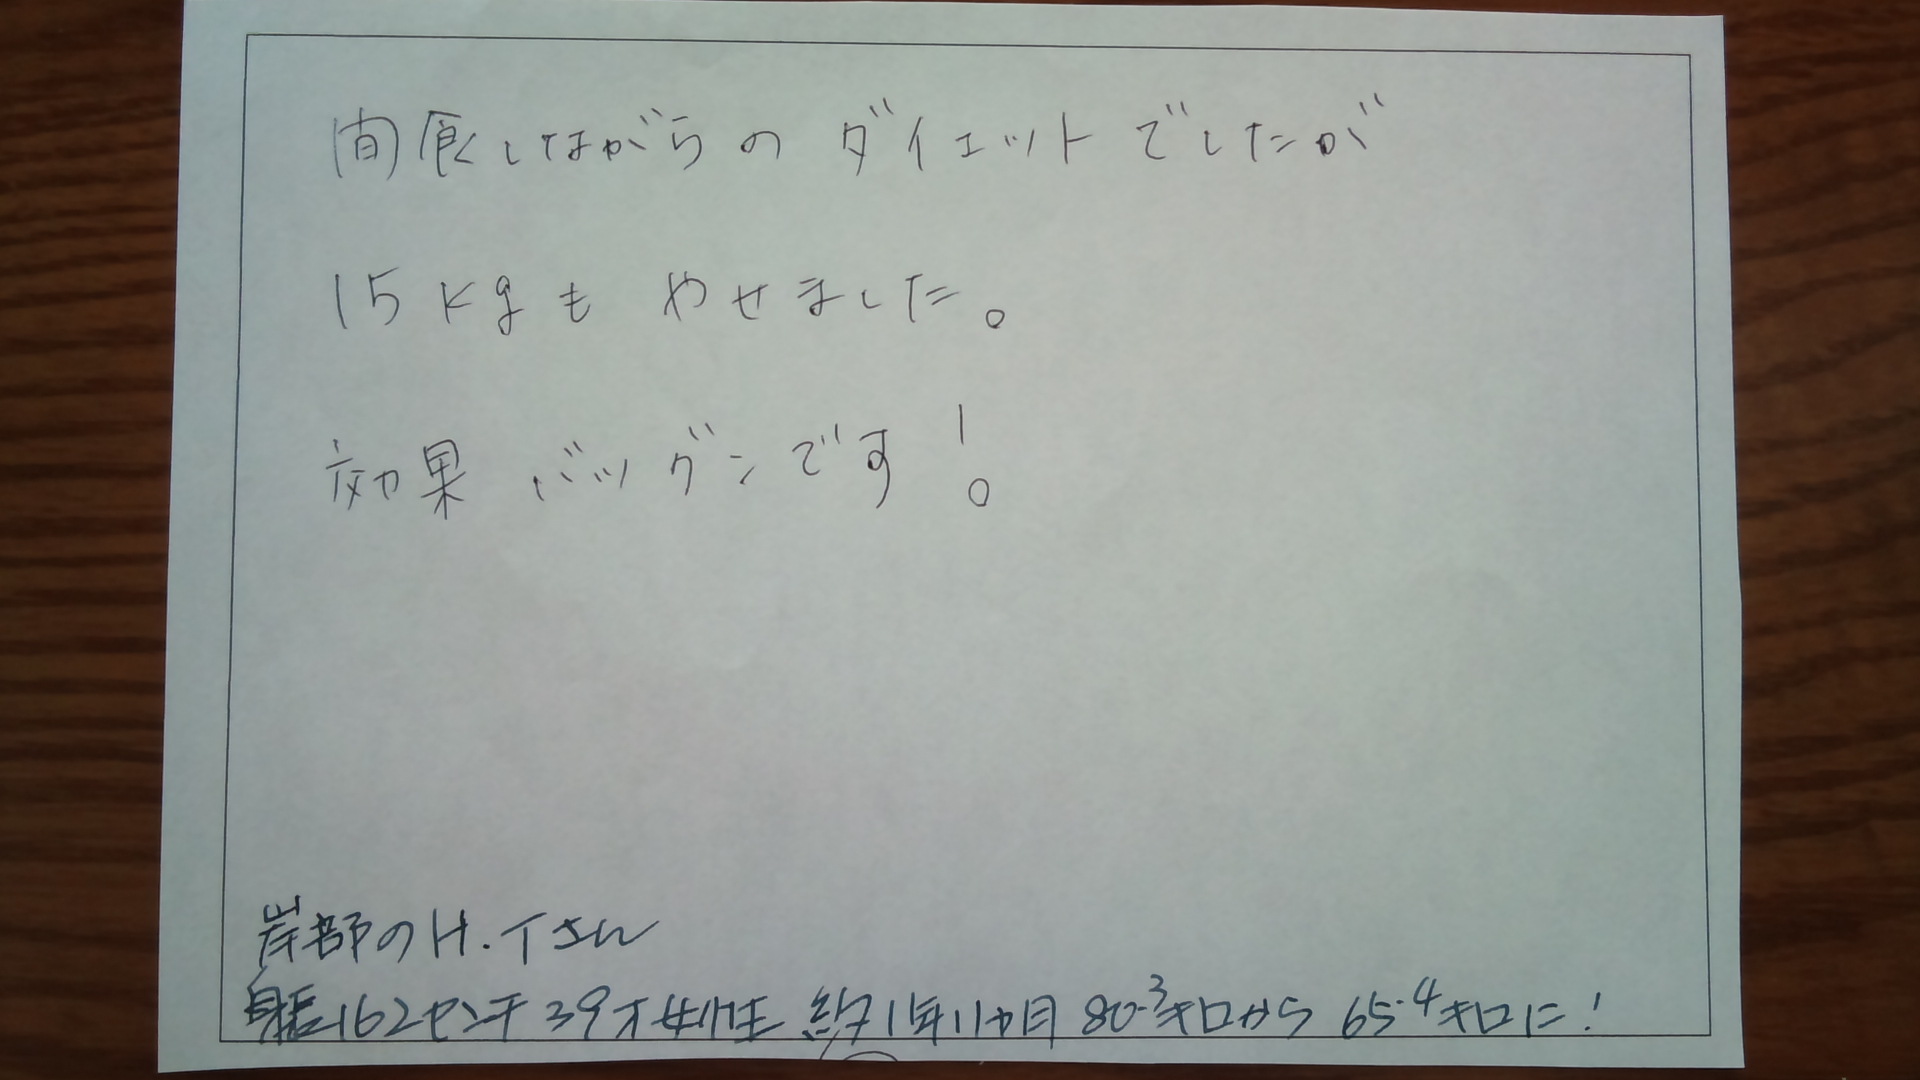 間食しながらの ダイエットでしたが
15kgも やせました。
効果 バツグンです!
岸部のH.Tさん
身長162センチ 39才女性 約1年11ヵ月 80.3キロから 65.4キロに!